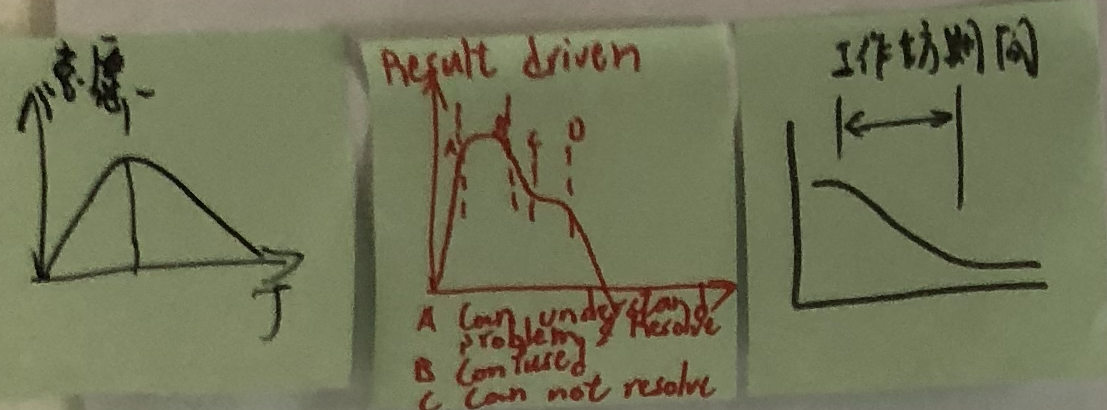 意愿
T
Result driven
A
B
C
D
A Can understand
problem & Resolve
B Confused
C Can not resolve
工作时间